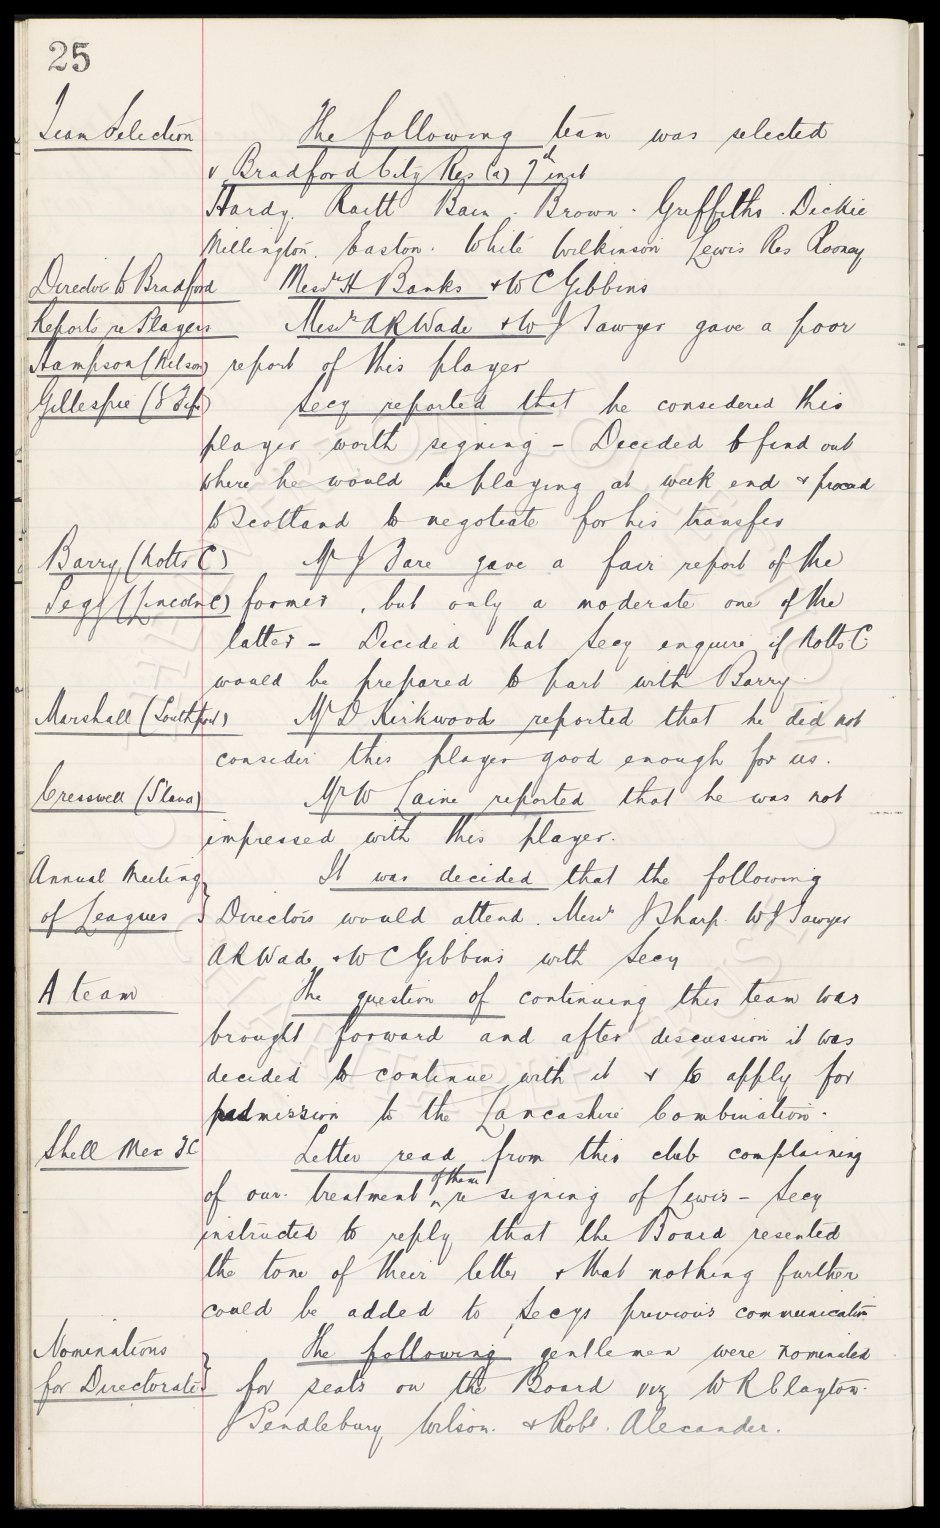 25
Team Selection The following team was selected
v Bradford City Res (a) 7th inst
Hardy. Raitt Bain. Brown. Griffiths. Dickie
Millington. Easton. White Wilkinson Lewis Res Rooney
Director to Bradford Messrs H Banks & W C Gibbins
Reports re Players Messrs A R Wade & W J Sawyer gave a poor
Hampson (Nelson) report of this player
Gillespie Secy reported that he considered this
player worth signing – Decided to find out
where he would be playing at week end & proceed
to Scotland to negotiate for his transfer
Barry (Notts C) Mr J Fare gave a fair report of the
(Lincoln C) former, but only a moderate one of the
latter – Decided that Secy enquire if Notts C.
would be prepared to part with Barry.
Marshall (Southport) Mr D Kirkwood reported that he did not
consider this player good enough for us.
Cresswell (S'land) Mr W Laine reported that he was not
impressed with this player.
Annual Meeting It was decided that the following
of Leagues } Directors would attend. Messrs J Sharp W J Sawyer
A R Wade & W C Gibbins with Secy
A team The question of continuing this team was
brought forward and after discussion it was
decided to continue with it & to apply for
admission to the Lancashire Combination.
Shell Mex FC Letter read from this club complaining
of our treatment of them re signing of Lewis – Secy
instructed to reply that the Board resented
the tone of their letter & that nothing further
could be added to Secys previous communication
Nominations The following gentlemen were nominated
for Directorate } for seats on the Board viz W R Clayton.
J Pendlebury Wilson. & Robt. Alexander.